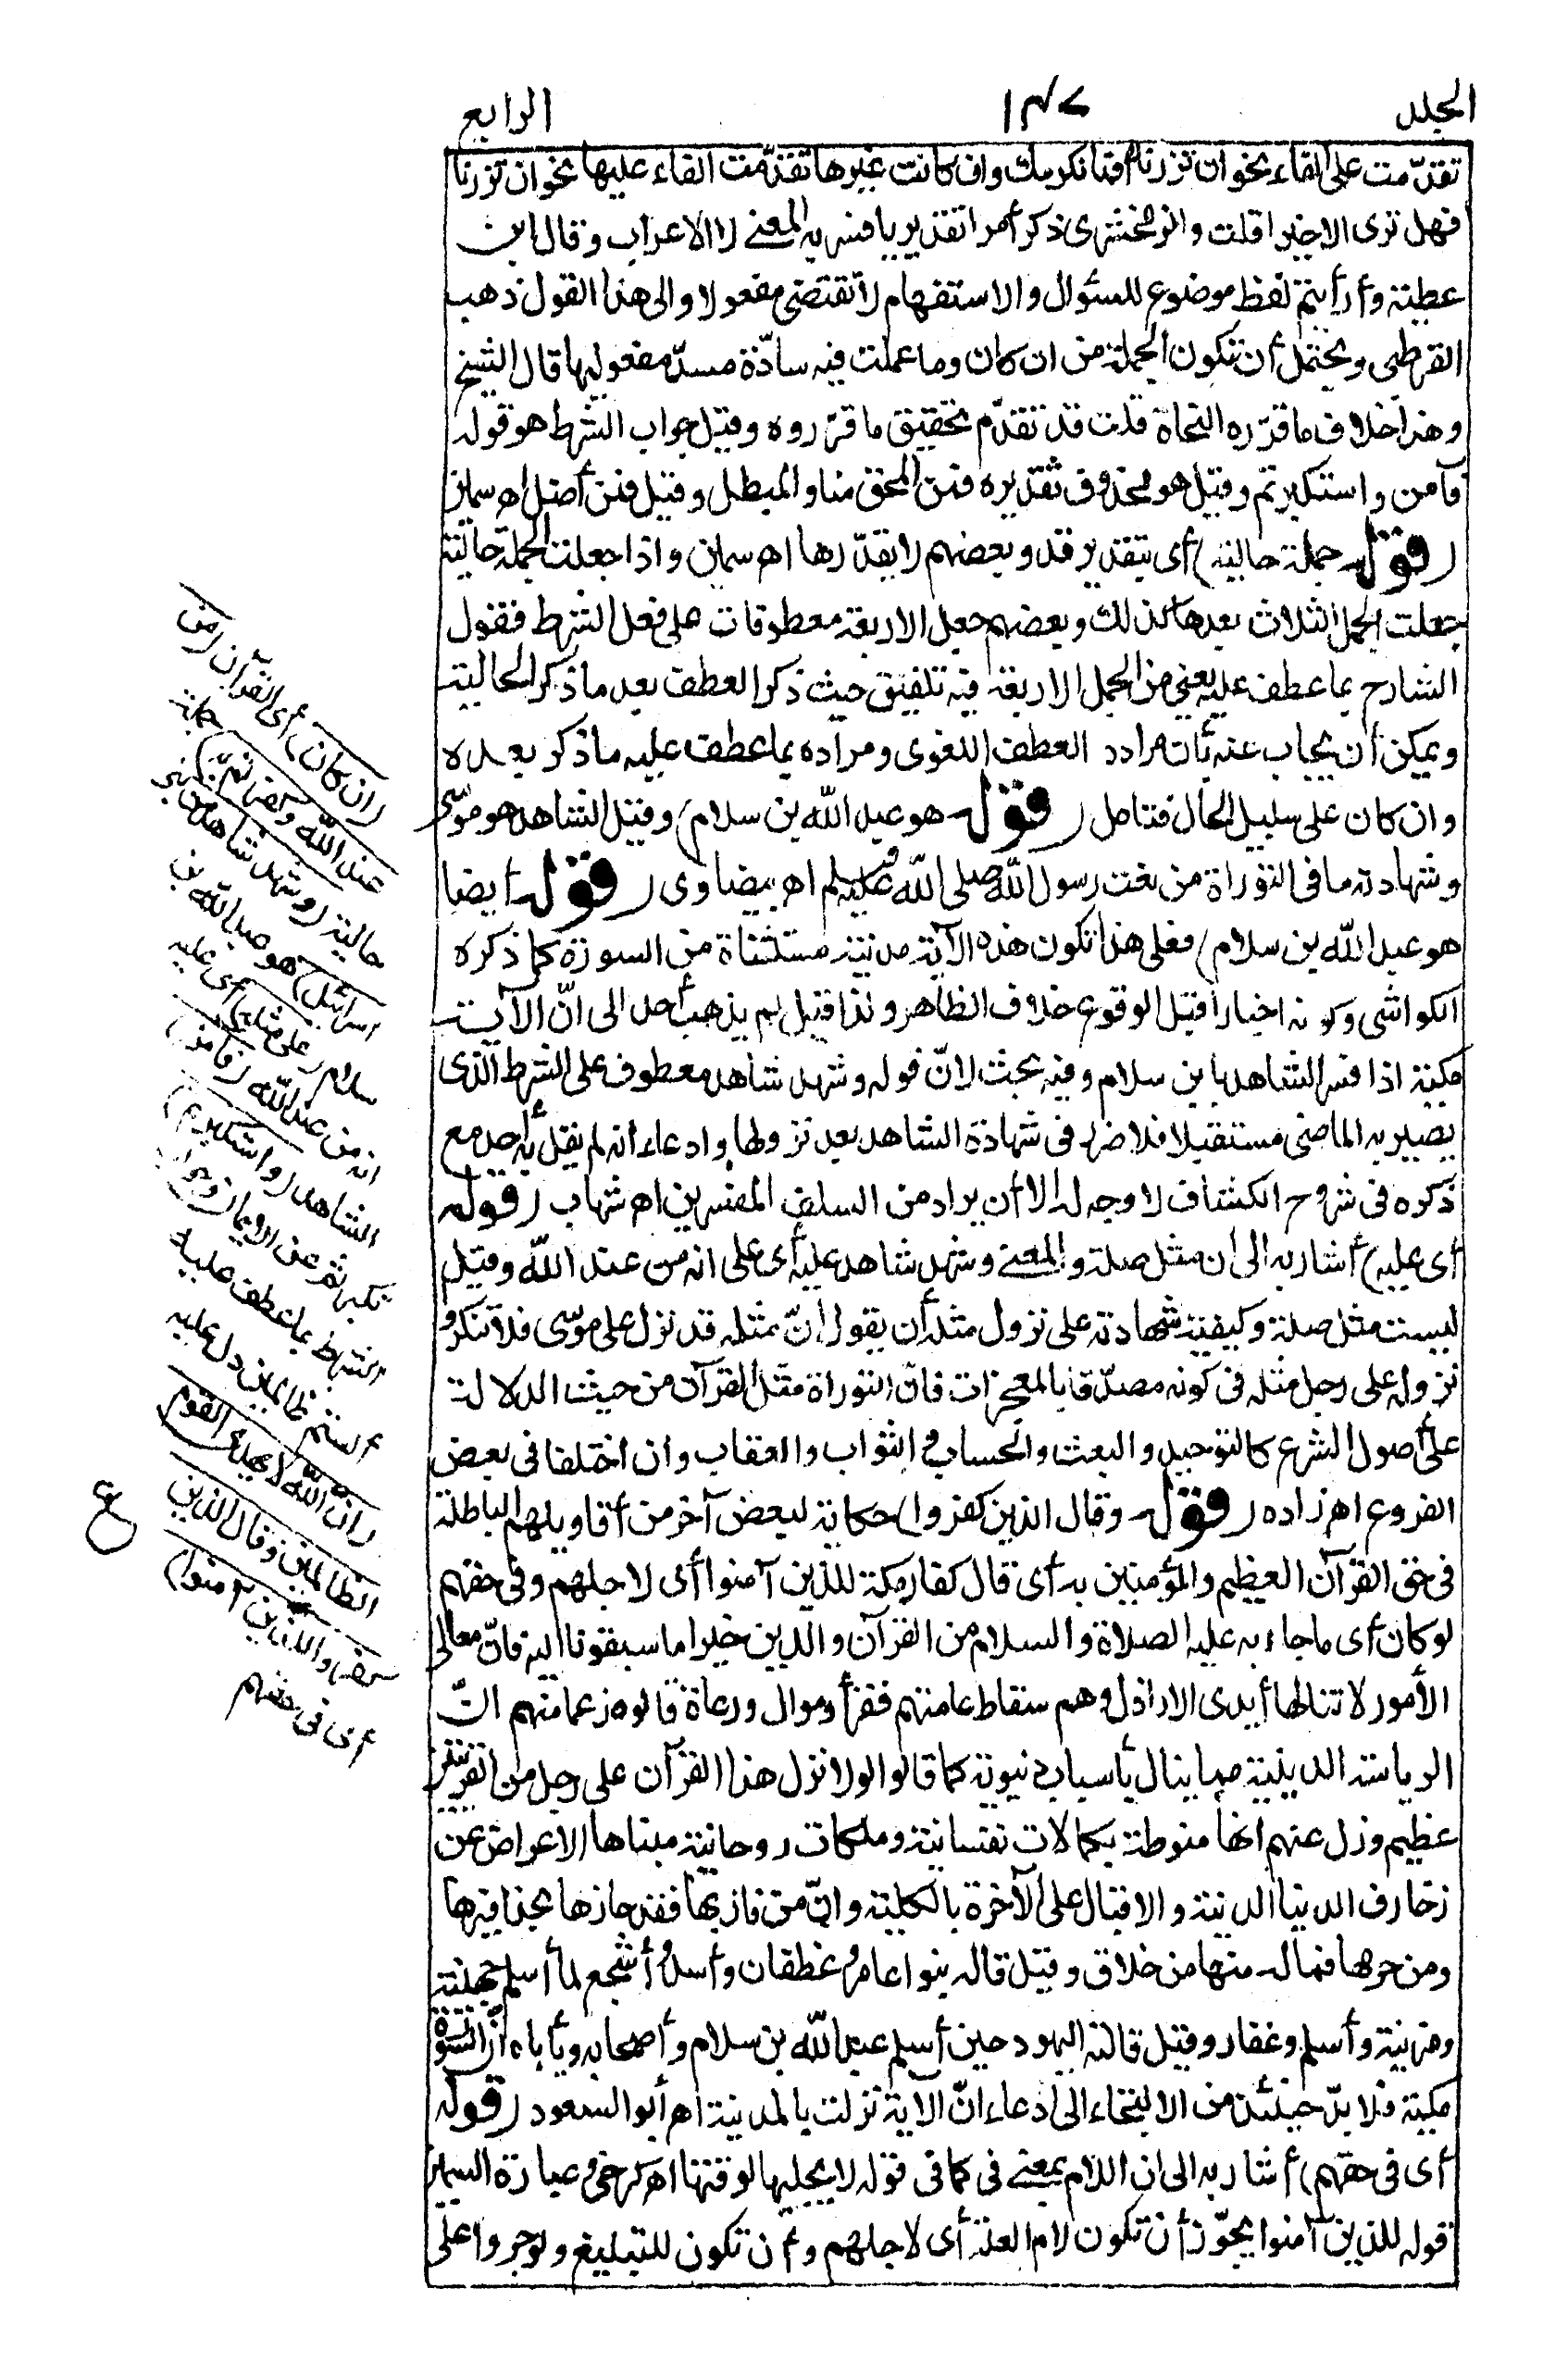 المجلد ١٣٧ الرابع
تقدّمت على الفاء نحو ان تزرنا أفما نكرمك وان كانت غيرها تقدّمت الفاء عليها نحو ان تزرنا
فهل ترى الا خيرا قلت والزمخشرى ذكر أمرا تقديريا فسر به المعنى لا الاعراب وقال ابن
عطية وأرأيتم لفظ موضوع للسؤال والاستفهام لا تقتضى مفعولا والى هذا القول ذهب
القرطبى ويحتمل أن تكون الجملة من ان كان وما عملت فيه سادّة مسدّ مفعوليها قال الشيخ
وهذا خلاف ما قرّره النحاة قلت قد تقدّم تحقيق ما قرّروه وقيل جواب الشرط هو قوله
فآمن واستكبرتم وقيل هو محذوف تقديره فمن المحق منا والمبطل وقيل فمن أضل اه سمين
(قوله جملة حالية) أى بتقدير قد وبعضهم لا يقدّرها اه سمين واذا جعلت الجملة حالية
جعلت الجمل الثلاث بعدها كذلك وبعضهم جعل الاربعة معطوفات على فعل الشرط فقول
الشارح بما عطف عليه يعنى من الجمل الاربعة فيه تلفيق حيث ذكر العطف بعد ما ذكر الحالية
ويمكن أن يجاب عنه بأن مراده العطف اللغوى ومراده بما عطف عليه ما ذكر بعده
وان كان على سبيل الحال فتامل (قوله هو عبد الله بن سلام) وقيل الشاهد هو موسى
وشهادته ما فى التوراة من نعت رسول الله صلى الله عليه وسلم اه بيضاوى (قوله أيضا
هو عبد الله بن سلام) فعلى هذا تكون هذه الآية مدنية مستثناة من السورة كما ذكره
الكواشى وكونه اخبارا قبل الوقوع خلاف الظاهر ولذا قيل لم يذهب أحد الى انّ الآية
مكية اذا فسر الشاهد بابن سلام وفيه بحث لانّ قوله وشهد شاهد معطوف على الشرط الذى
يصير به الماضى مستقبلا فلا ضرر فى شهادة الشاهد بعد نزولها وادعاء أنه لم يقل به أحد مع
ذكره فى شروح الكشاف لا وجه له الا أن يراد من السلف المفسرين اه شهاب (قوله
أى عليه) أشار به الى ان مثل صلة والمعنى وشهد شاهد عليه أى على انه من عند الله وقيل
ليست مثل صلة وكيفية شهادته على نزول مثله أن يقول انّ مثله قد نزل على موسى فلا تنكروا
نزوله على رجل مثله فى كونه مصدّقا بالمعجزات فانّ التوراة مثل القرآن من حيث الدلالة
على أصول الشرع كالتوحيد والبعث والحساب والثواب والعقاب وان اختلفا فى بعض
الفروع اه زاده (قوله وقال الذين كفروا) حكاية لبعض آخر من أقاويلهم الباطلة
فى حق القرآن العظيم والمؤمنين به أى قال كفار مكة للذين آمنوا أى لاجلهم وفى حقهم
لو كان أى ما جاء به عليه الصلاة والسلام من القرآن والدين خيرا ما سبقونا اليه فانّ معالى
الأمور لا تنالها أيدى الاراذل وهم سقاط عامتهم فقرأ وموال ورعاة قالوه زعما منهم انّ
الرياسة الدينية مما ينال بأسباب دنيوية كما قالوا لولا نزل هذا القرآن على رجل من القريتين
عظيم وزل عنهم انها منوطة بكمالات نفسانية وملكات روحانية مبناها الاعراض عن
زخارف الدنيا الدنية والاقبال على الآخرة بالكلية وانّ من فاز بها فقد حازها بحذافيرها
ومن حرمها فماله منها من خلاق وقيل قاله بنوا عامر وغطفان وأسد وأشجع لما أسلم جهينة
ومزينة وأسلم وغفار وقيل قالته اليهود حين أسلم عبد الله بن سلام وأصحابه ويأباه أنّ السورة
مكية فلا بدّ حينئذ من الالتجاء الى ادعاء انّ الآية نزلت بالمدينة اه أبو السعود (قوله
أى فى حقهم) أشار به الى ان اللام بمعنى فى كما فى قوله لا يجليها لوقتها اه كرخى وعبارة السمين
قوله للذين آمنوا يجوّز أن تكون لام العلة أى لاجلهم وأن تكون للتبليغ ولو جروا على
(ان كان) أى القرآن (من
عند الله وكفرتم به) جملة
حالية (وشهد شاهد من بنى
اسرائيل) هو عبد الله بن
سلام (على مثله) أى عليه
انه من عند الله (فآمن)
الشاهد (واستكبرتم)
تكبرتم عن الايمان وجواب
الشرط بما عطف عليه
ألستم ظالمين دل عليه
(انّ الله لا يهدى القوم
الظالمين وقال الذين
كفروا للذين آمنوا)
أى فى حقهم
ع